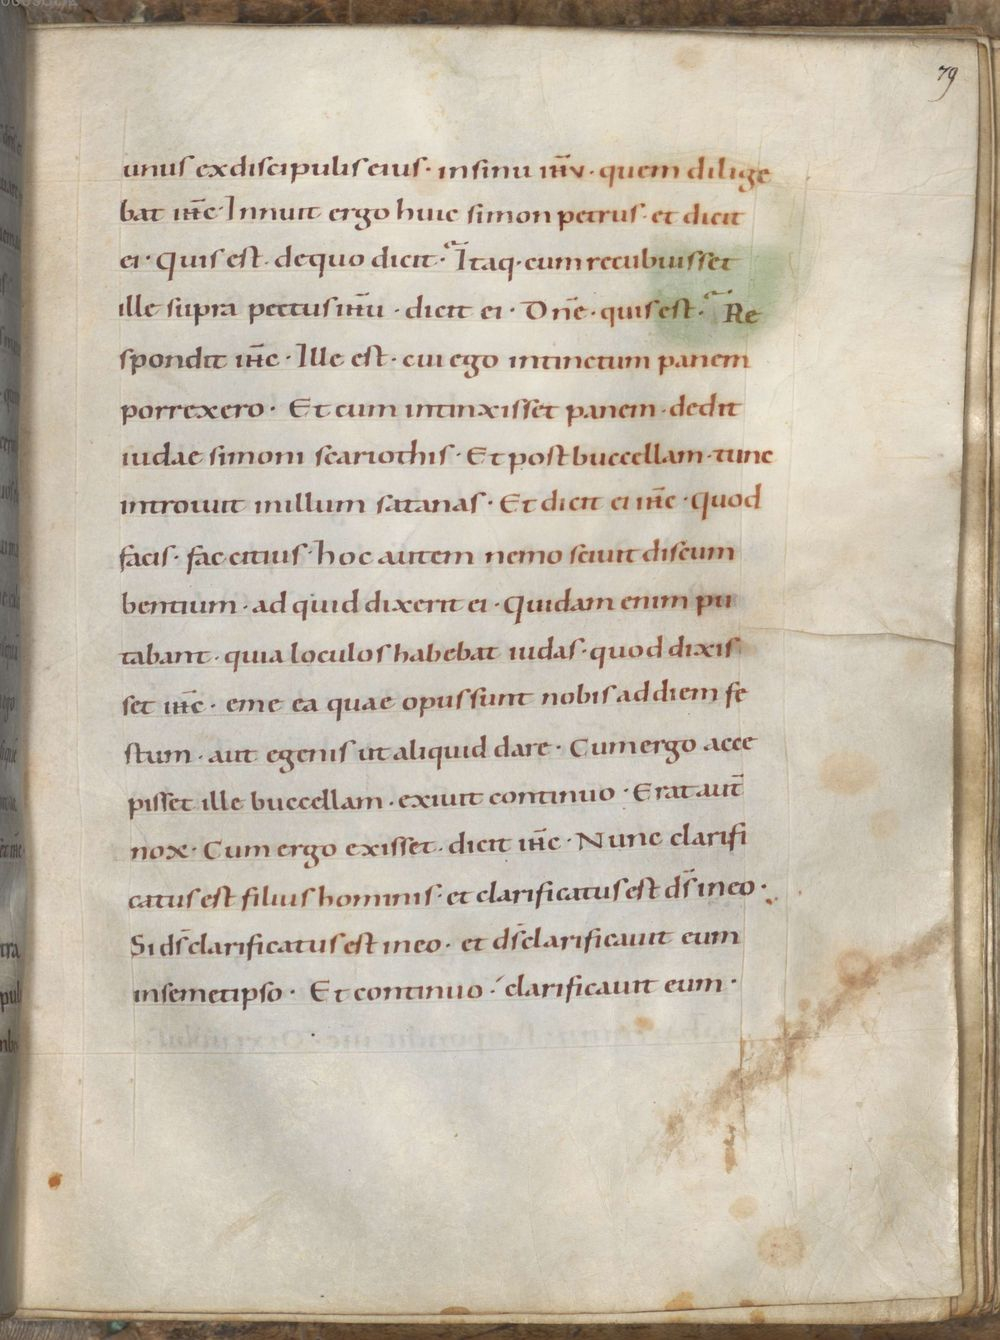 79
unus ex discipulis eius · in sinu ih̅u · quem dilige
bat ih̅c · Innuit ergo huic simon petrus · et dicit
ei · Quis est · de quo dicit · Itaq · cum recubuisset
ille supra pectus ih̅u · dicit ei · Dn̅e · quis est · Re
spondit ih̅c · Ille est · cui ego intinctum panem
porrexero · Et cum intinxisset panem · dedit
iudae simoni scariothis · Et post buccellam · tunc
introiuit in illum satanas · Et dicit ei ih̅c · quod
facis · fac citius · hoc autem nemo sciuit discum
bentium · ad quid dixerit ei · Quidam enim pu
tabant · quia loculos habebat iudas · quod dixis
set ih̅c · eme ea quae opus sunt nobis ad diem fe
stum · aut egenis ut aliquid daret · Cum ergo acce
pisset ille buccellam · exiuit continuo · Erat aut̅
nox · Cum ergo exisset · dicit ih̅c · Nunc clarifi
catus est filius hominis · et clarificatus est ds̅ in eo ·
Si ds̅ clarificatus est in eo · et ds̅ clarificauit eum
in semetipso · Et continuo · clarificauit eum ·